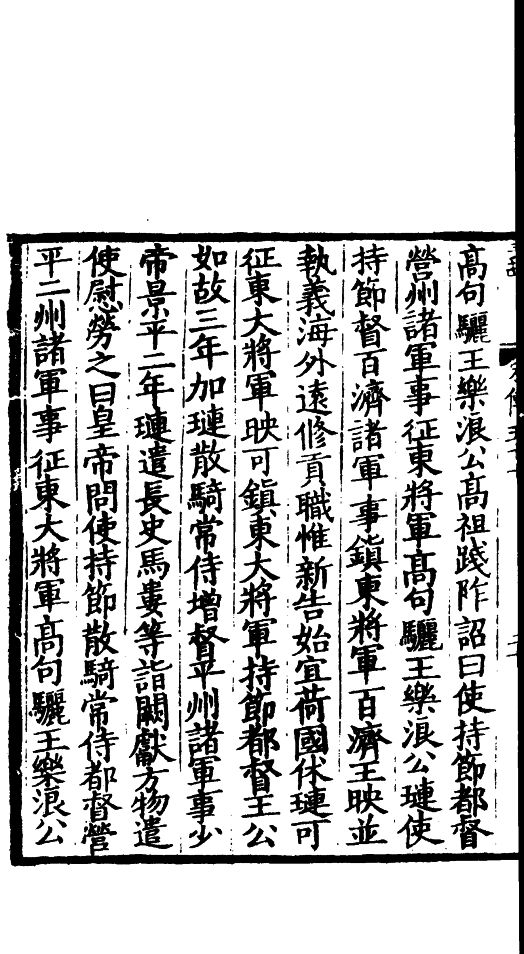 高句驪王樂浪公高祖踐阼詔曰使持節都督
營州諸軍事征東將軍高句驪王樂浪公璉使
持節督百濟諸軍事鎮東將軍百濟王映並
執義海外遠修貢職惟新告始宜荷國休璉可
征東大將軍映可鎮東大將軍持節都督王公
如故三年加璉散騎常侍增督平州諸軍事少
帝景平二年璉遣長史馬婁等詣闕獻方物遣
使慰勞之曰皇帝問使持節散騎常侍都督營
平二州諸軍事征東大將軍高句驪王樂浪公